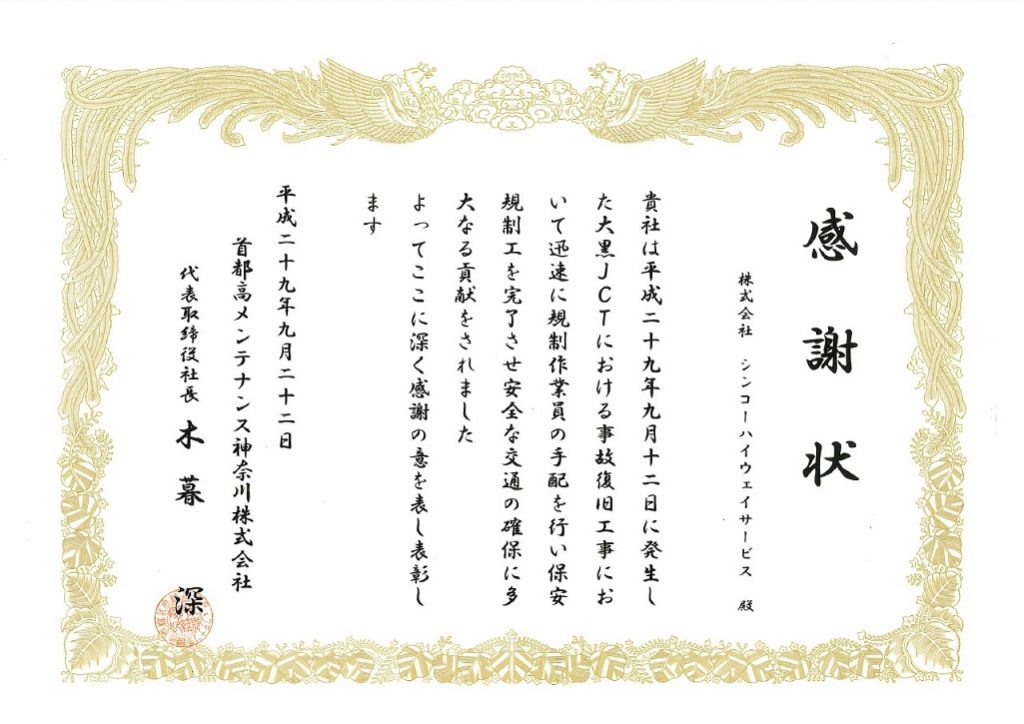 感謝状
株式会社 シンコーハイウェイサービス 殿
貴社は平成二十九年九月十二日に発生し
た大黒JCTにおける事故復旧工事にお
いて迅速に規制作業員の手配を行い保安
規制工を完了させ安全な交通の確保に多
大なる貢献をされました
よってここに深く感謝の意を表し表彰し
ます
平成二十九年九月二十二日
首都高メンテナンス神奈川株式会社
代表取締役社長 木暮 深